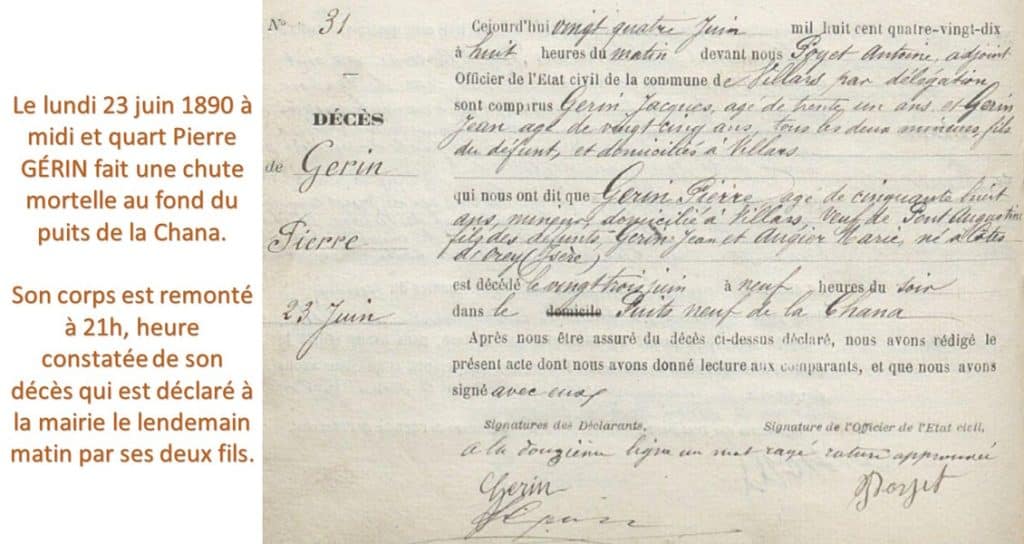 Le lundi 23 juin 1890 à
midi et quart Pierre
GÉRIN fait une chute
mortelle au fond du
puits de la Chana.
Son corps est remonté
à 21h, heure
constatée de son
décès qui est déclaré à
la mairie le lendemain
matin par ses deux fils.
N° 31
DÉCÈS
de Gerin
Pierre
23 Juin
Cejourd'hui vingt quatre Juin mil huit cent quatre-vingt-dix
à huit heures du matin devant nous Poyet Antoine, adjoint
Officier de l'Etat civil de la commune de Villars par délégation
sont comparus Gerin Jacques, age de trente un ans et Gerin
Jean age de vingt cinq ans, tous les deux mineurs, fils
du défunt, et domiciliés à Villars
qui nous ont dit que Gerin Pierre, age de cinquante huit
ans, mineur, domicilié à Villars, veuf de Pont Augustine
fils des défunts, Gerin Jean et Augier Marie, né à Côtes
d'Arey (Isère)
est décédé le vingt trois juin à neuf heures du soir
dans le domicile Puits neuf de la Chana
Après nous être assuré du décès ci-dessus déclaré, nous avons rédigé le
présent acte dont nous avons donné lecture aux comparants, et que nous avons
signé avec eux
Signatures des Déclarants, Signature de l'Officier de l'Etat civil,
a la douzième ligne un mot rayé rature approuvée
Gerin Poyet